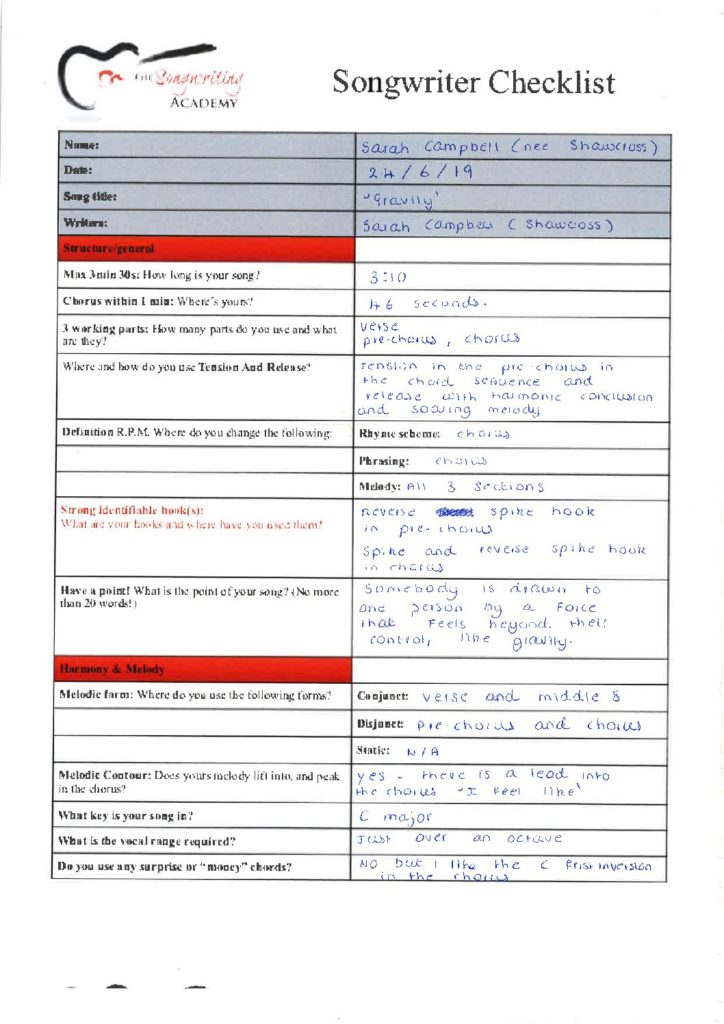 THE Songwriting
ACADEMY
Songwriter Checklist
Name: Sarah Campbell (nee Shawcross)
Date: 24/6/19
Song title: 'Gravity'
Writers: Sarah Campbell (Shawcross)
Structure/general
Max 3min 30s: How long is your song? 3:10
Chorus within 1 min: Where's yours? 46 seconds.
3 working parts: How many parts do you use and what
are they?
verse
pre-chorus, chorus
Where and how do you use Tension And Release?
Tension in the pre-chorus in
the chord sequence and
release with harmonic conclusion
and soaring melody
Definition R.P.M. Where do you change the following:
Rhyme scheme: chorus
Phrasing: chorus
Melody: All 3 sections
Strong identifiable hook(s):
What are your hooks and where have you used them?
reverse spike hook
in pre-chorus
Spike and reverse spike hook
in chorus
Have a point! What is the point of your song? (No more
than 20 words!)
Somebody is drawn to
one person by a force
that feels beyond their
control, like gravity.
Harmony & Melody
Melodic form: Where do you use the following forms?
Conjunct: verse and middle 8
Disjunct: pre-chorus and chorus
Static: N/A
Melodic Contour: Does yours melody lift into, and peak
in the chorus?
yes - there is a lead into
the chorus 'I feel like'
What key is your song in? C major
What is the vocal range required? Just over an octave
Do you use any surprise or "money" chords?
NO but I like the C first inversion
in the chorus